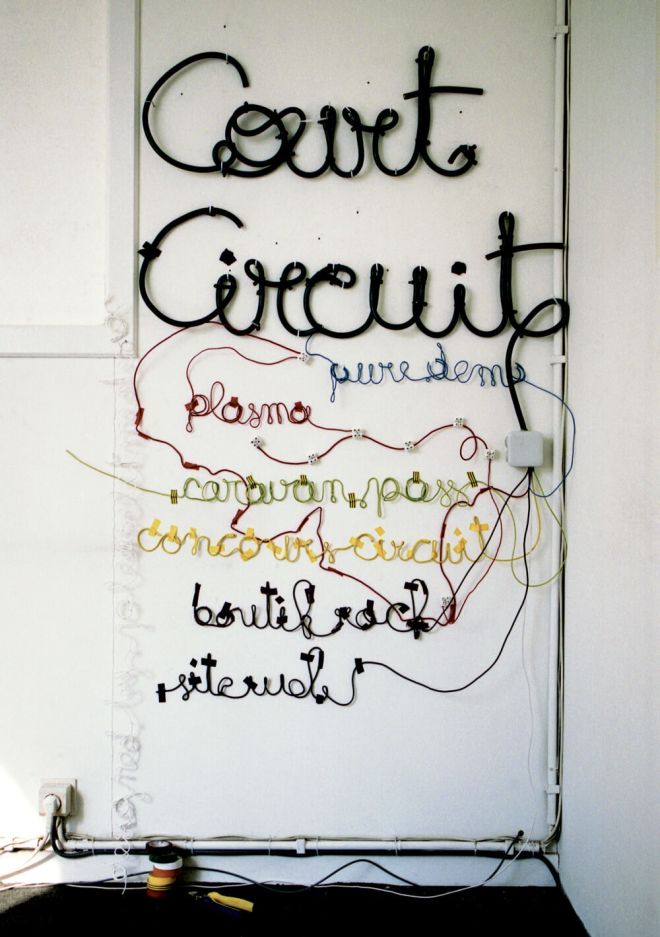 Court
Circuit
pure.demo
plasma
caravan.pass
concours-circuit
boutik rock